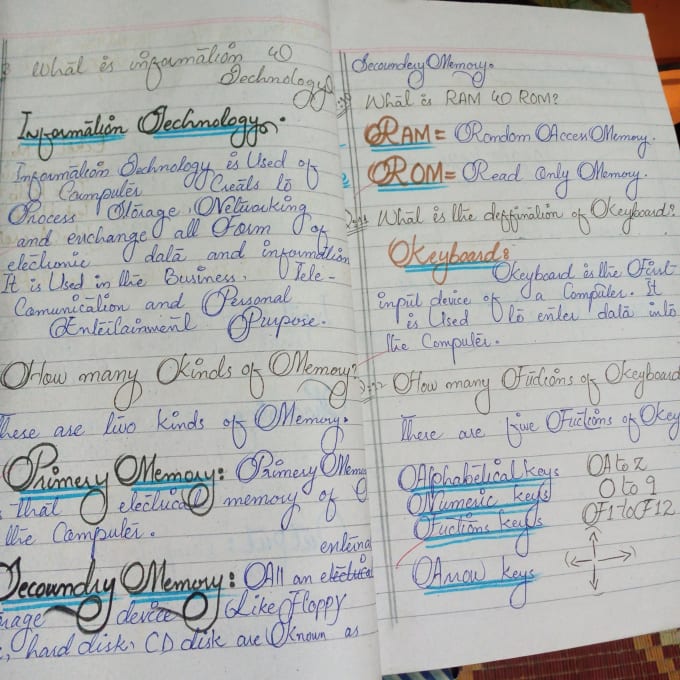 What is information 40
Technology?
Information Technology.
Information Technology is Used of
Computer Creats to
Process, Storage, Networking
and exchange all Form of
electronic data and information
It is Used in the Business, Tele-
Comunication and Personal
Entertainment Purpose.
How many Kinds of Memory?
These are two kinds of Memory.
Primery Memory: Primery Memo
that electrical memory of
the Computer.
enterna
Secoundry Memory: All an electrical
device Like Floppy
, hard disk, CD disk are Known as
Secoundery Memory.
What is RAM 40 ROM?
RAM = Random Access Memory.
ROM = Read Only Memory.
What is the deffination of Keyboard?
Keyboard:
Keyboard is the First
input device of a Computer. It
is Used to enter data into
the Computer.
How many Fuctions of Keyboard
There are five Fuctions of Key
Alphabetical keys A to Z
Numeric keys 0 to 9
Fuctions keys F1 to F12
Arrow keys